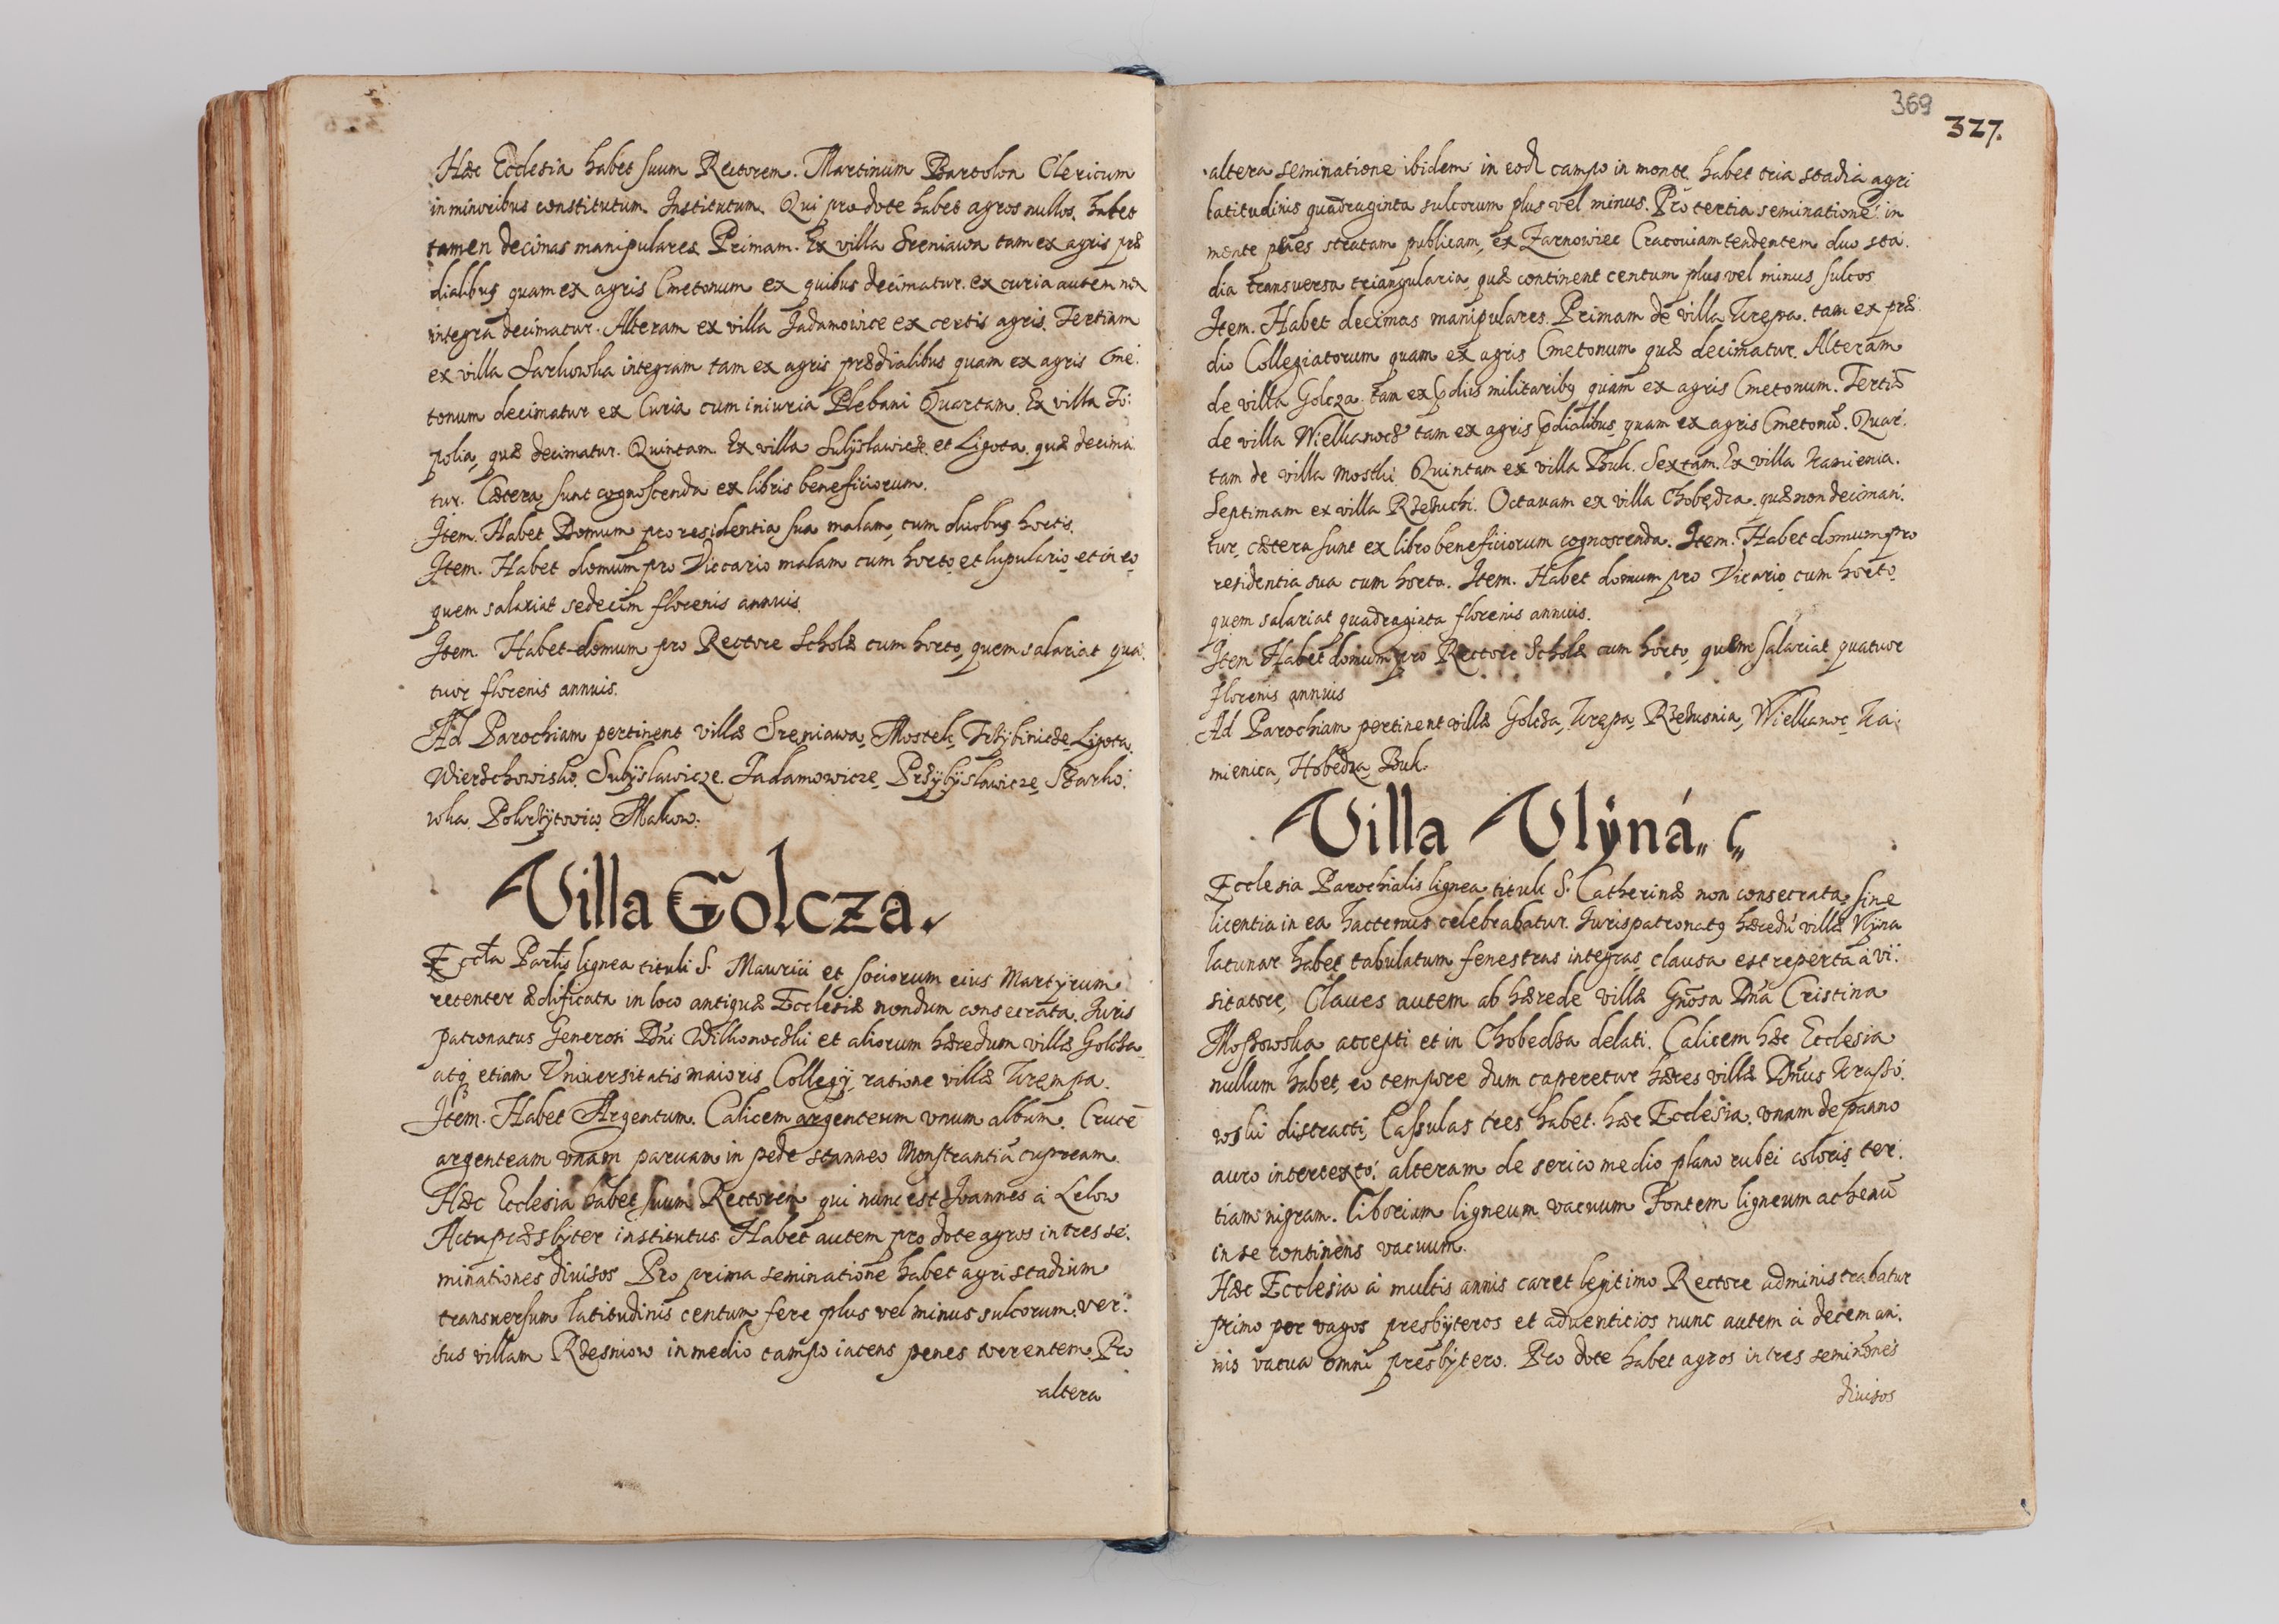 Hæc Ecclesia habet suum Rectorem. Martinum Bartolon Clericum
in minoribus constitutum. Institutum. Qui pro dote habet agros nullos. habet
tamen decimas manipulares Primam. Ex villa Sreniawa tam ex agris præ
dialibus quam ex agris Cmetonum ex quibus decimatur. ex curia autem non
integra decimatur. Alteram ex villa Jadamowice ex certis agris. Tertiam
ex villa Sarkowka integram tam ex agris prædialibus quam ex agris Cme:
tonum decimatur ex Curia cum iniuria Plebani Quartam. Ex villa To:
polia, quæ decimatur. Quintam Ex villa Sulÿslawicze et Ligota. quæ decima
tur. Cætera sunt cognoscenda ex libris beneficiorum.
Item. Habet Domum pro residentia sua malam, cum duobus hortis.
Item. Habet domum pro Viccario malam cum horto et lupulario et in eo
quem salariat sedecim florenis annuis.
Item. Habet domum pro Rectore Scholæ cum horto, quem salariat qua:
tuor florenis annuis.
Ad Parochiam pertinent villæ Sreniawa, Mostek, Trzÿbinicze Ligota.
Wierzchowisko. Sulÿslawicze. Jadamowicze, Przÿbÿslawicze, Szarko:
wka. Pokrzÿtowicz Makow.
Villa Golcza.
Eccła Partis lignea tituli S. Mauricii et sociorum eius Martÿrum
recenter ædificata in loco antiquæ Ecclesiæ nondum consecrata. Iuris
patronatus Generosi Dni Wilkonoczki et aliorum hæredum villæ Golcza
atq etiam Vniuersitatis maioris Collegij, ratione villæ Krempa.
Item. Habet Argentum. Calicem argenteum vnum album. Crucē
argenteam vnam paruam in pede stanneo Monstrantiā cupream.
Hæc Ecclesia habet suum Rectorem qui nunc est Joannes à Lelow
Actu præsbÿter institutus Habet autem pro dote agros in tres se:
minationes diuisos Pro prima seminatione habet agri stadium
transuersum latitudinis centum fere plus vel minus sulcorum. ver:
sus villam Rzesniow in medio campo iacens penes torrentem. Pro
altera
369
327.
altera seminatione ibidem in eod campo in monte. habet tria stadia agri
latitudinis quadraginta sulcorum plus vel minus. Pro tertia seminatione in
monte penes stratam publicam, ex Zarnowiec Cracouiam tendentem duo sta:
dia transuersa triangularia, quæ continent centum plus vel minus sulcos
Item. Habet decimas manipulares. Primam de villa Krępa. tam ex præ:
dio Collegiatorum quam ex agris Cmetonum quæ decimatur. Alteram
de villa Golcza. tam ex pdiis militaribus quam ex agris Cmetonum. Tertiā
de villa Wielkanocz tam ex agris pdialibus quam ex agris Cmetonū. Quar:
tam de villa Mostki Quintam ex villa Buk. Sextam. Ex villa Kamienica.
Septimam ex villa Rzezuchi. Octauam ex villa Chobędza. quæ non deciman:
tur, cætera sunt ex libro beneficiorum cognoscenda. Item. Habet domum pro
residentia sua cum horto. Item. Habet domum pro Vicario, cum horto
quem salariat quadraginta florenis annuis.
Item Habet domum pro Rectore Scholæ cum horto, quem salariat quatuor
florenis annuis
Ad Parochiam pertinent villæ Golcza, Krępa, Rzezusnia, Wielkanoc, Ka:
mienica, Hobędza, Buk.
Villa Vlÿná
Ecclesia Parochialis lignea tituli S. Catherinæ non consecrata, sine
licentia in ea hactenus celebrabatur. Iurispatronatus hæredū villæ Vlÿna
lacunar habet tabulatum fenestras integras, clausa est reperta à vi:
sitatore, Claues autem ab hærede villæ Gnosa Dna Cristina
Moszowska accepti et in Chobedza delati. Calicem hæc Ecclesia
nullum habet, eo tempore dum caperetur hæres villæ Dnus Krasso:
wski distracti, Cassulas tres habet. hæc Ecclesia. vnam de panno
auro intertexto. alteram de serico medio plano rubei coloris ter:
tiam nigram. Ciborium ligneum vacuum Fontem ligneum ahenū
in se continens vacuum.
Hæc Ecclesia à multis annis caret legitimo Rectore administrabatur
primo per vagos presbÿteros et aduenticios nunc autem à decem an:
nis vacua omni presbÿtero. Pro dote habet agros in tres seminones
diuisos